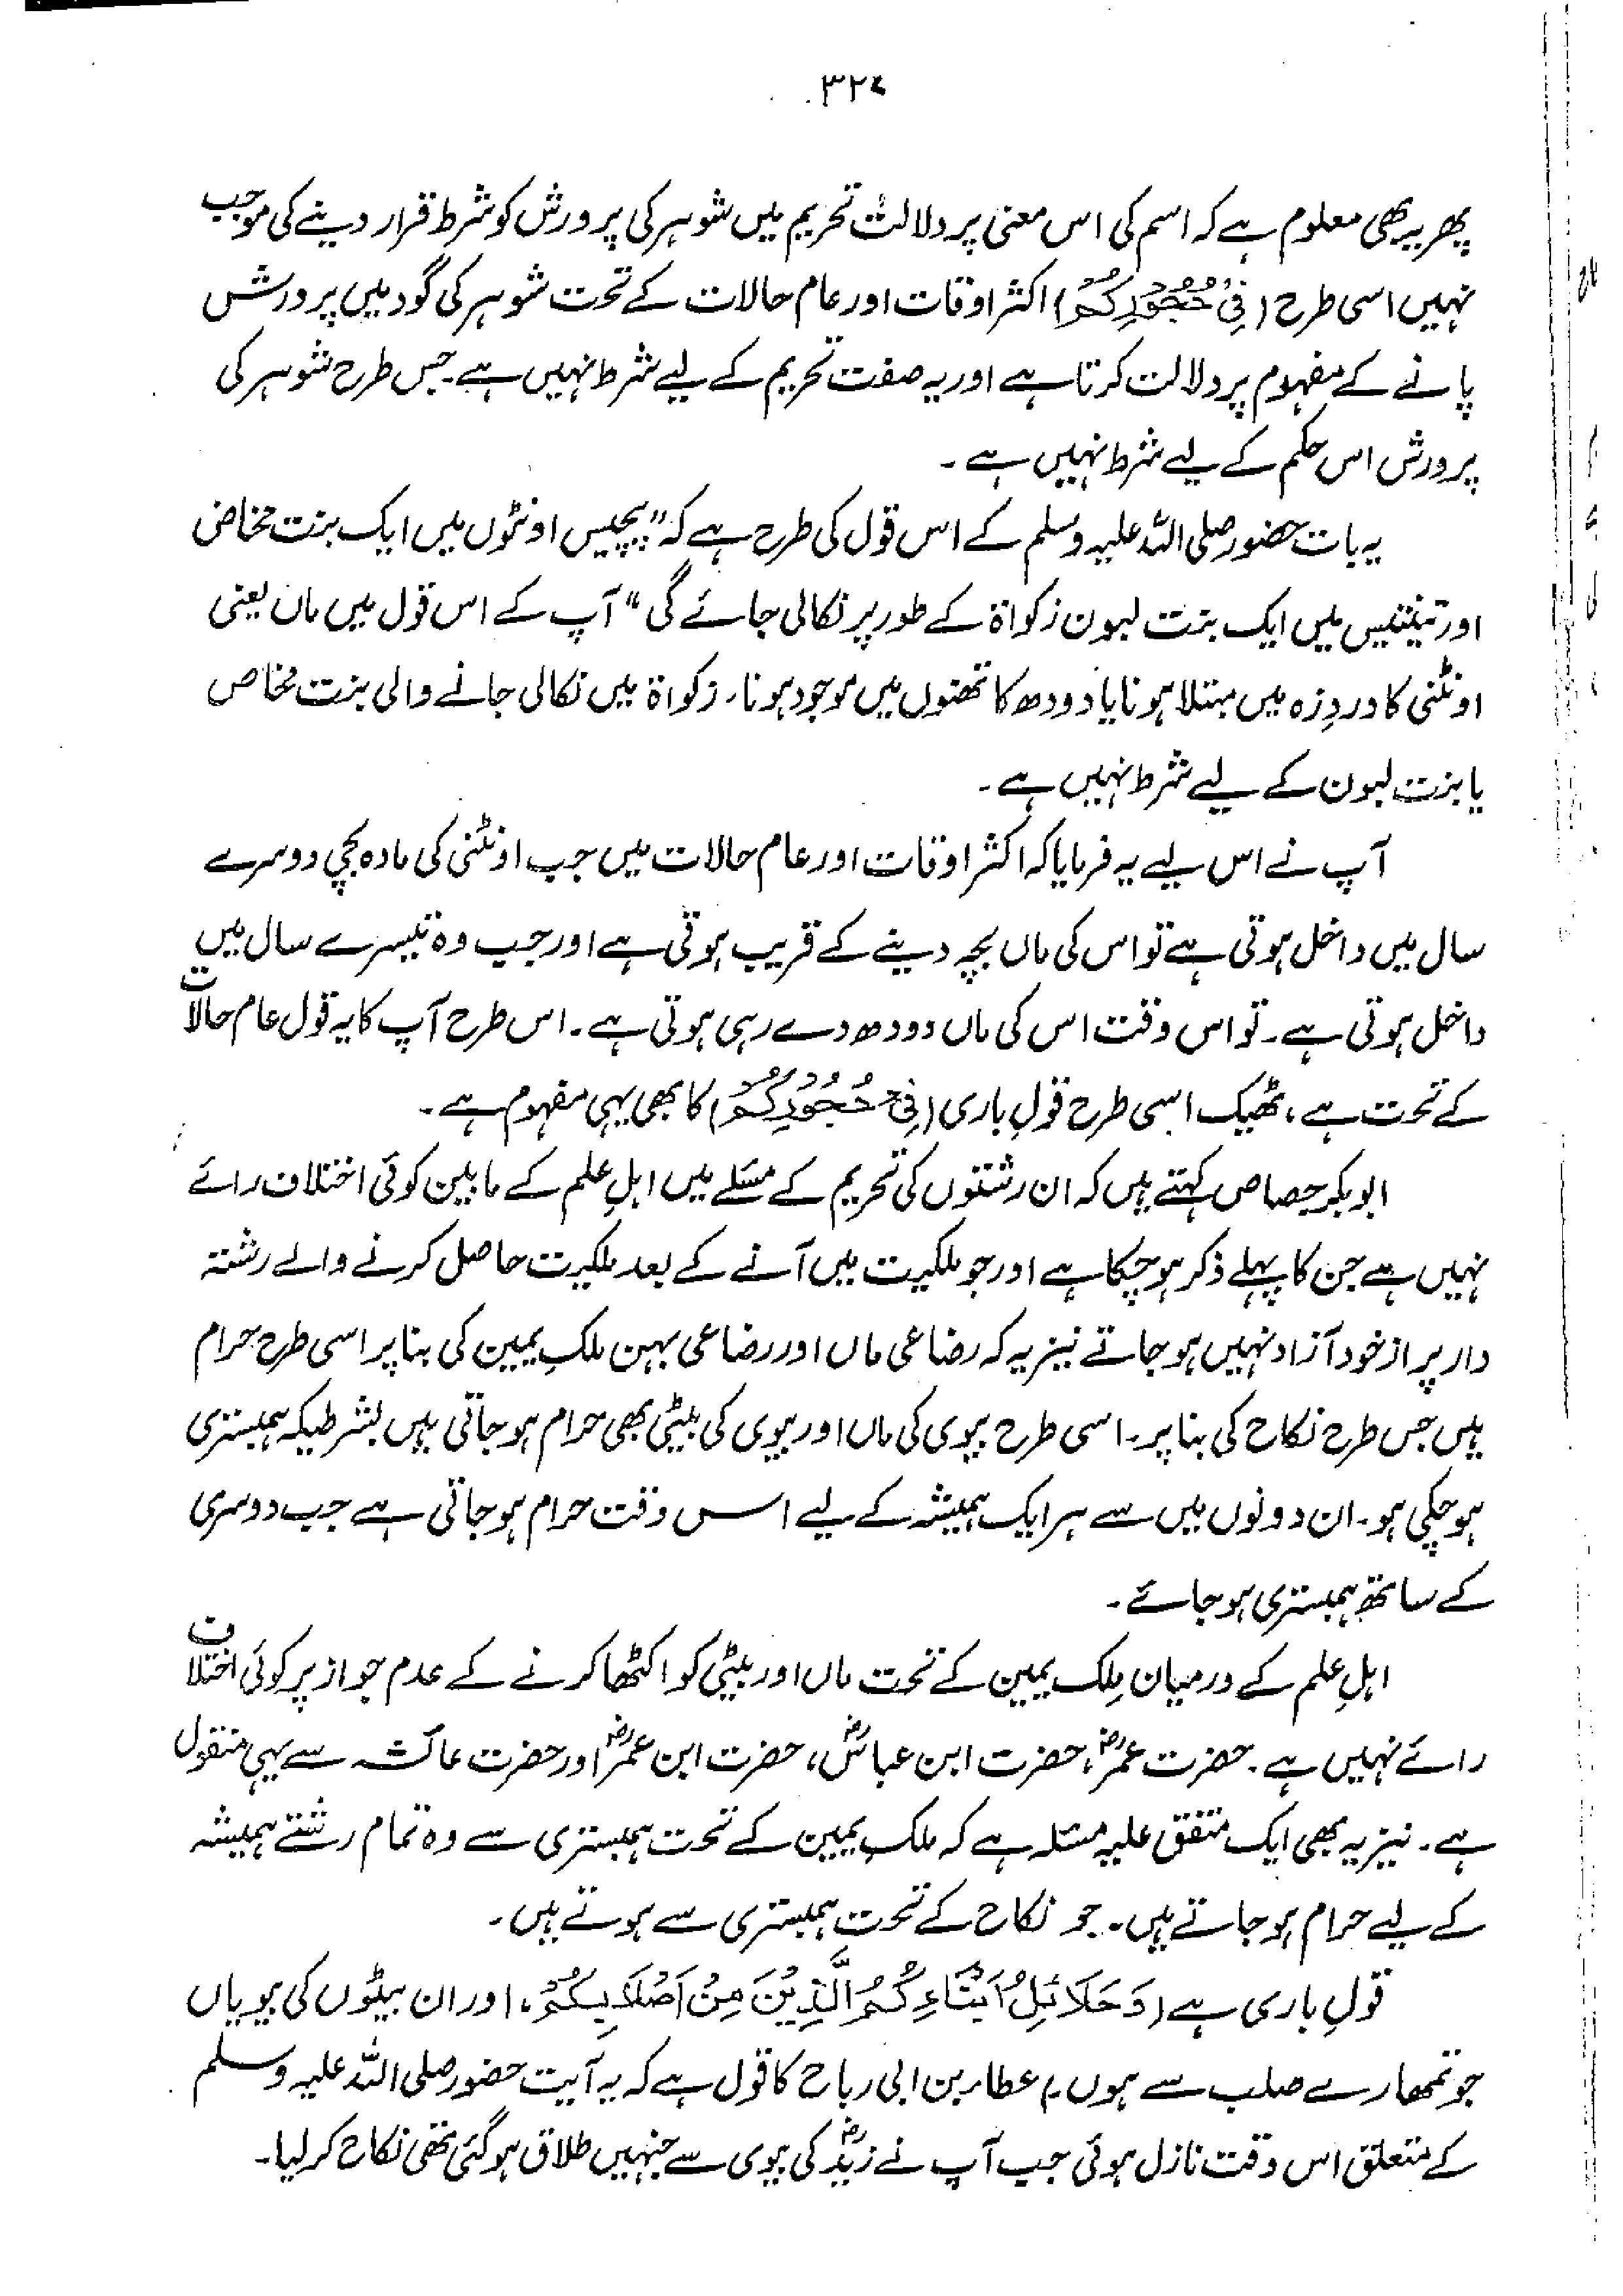 ۳۲۷
پھر یہ بھی معلوم ہے کہ اسم کی اس معنی پر دلالت تحریم میں شوہر کی پرورش کو شرط قرار دینے کی موجب
نہیں اسی طرح (فِیْ حُجُوْرِکُمْ) اکثر اوقات اور عام حالات کے تحت شوہر کی گود میں پرورش
پانے کے مفہوم پر دلالت کرتا ہے اور یہ صفت تحریم کے لیے شرط نہیں ہے۔ جس طرح شوہر کی
پرورش اس حکم کے لیے شرط نہیں ہے۔
یہ بات حضور صلی اللہ علیہ وسلم کے اس قول کی طرح ہے کہ "پچیس اونٹوں میں ایک بنت مخاض
اور تینتیس میں ایک بنت لبون زکواۃ کے طور پر نکالی جائے گی" آپ کے اس قول میں ماں یعنی
اونٹنی کا دردِ زہ میں مبتلا ہونا یا دودھ کا تھنوں میں موجود ہونا۔ زکواۃ میں نکالی جانے والی بنت مخاص
یا بنت لبون کے لیے شرط نہیں ہے۔
آپ نے اس لیے یہ فرمایا کہ اکثر اوقات اور عام حالات میں جب اونٹنی کی مادہ بچی دوسرے
سال میں داخل ہوتی ہے تو اس کی ماں بچہ دینے کے قریب ہوتی ہے اور جب وہ تیسرے سال میں
داخل ہوتی ہے۔ تو اس وقت اس کی ماں دودھ دے رہی ہوتی ہے۔ اس طرح آپ کا یہ قول عام حالات
کے تحت ہے، ٹھیک اسی طرح قولِ باری (فِیْ حُجُوْرِکُمْ) کا بھی یہی مفہوم ہے۔
ابوبکر جصاص کہتے ہیں کہ ان رشتوں کی تحریم کے مسئلے میں اہلِ علم کے مابین کوئی اختلاف رائے
نہیں ہے جن کا پہلے ذکر ہو چکا ہے اور جو ملکیت میں آنے کے بعد ملکیت حاصل کرنے والے رشتہ
دار پر از خود آزاد نہیں ہو جاتے نیز یہ کہ رضاعی ماں اور رضاعی بہن ملکِ یمین کی بنا پر اسی طرح حرام
ہیں جس طرح نکاح کی بنا پر۔ اسی طرح بیوی کی ماں اور بیوی کی بیٹی بھی حرام ہو جاتی ہیں بشرطیکہ ہمبستری
ہو چکی ہو۔ ان دونوں میں سے ہر ایک ہمیشہ کے لیے اس وقت حرام ہو جاتی ہے جب دوسری
کے ساتھ ہمبستری ہو جائے۔
اہلِ علم کے درمیان مِلک یمین کے تحت ماں اور بیٹی کو اکٹھا کرنے کے عدم جواز پر کوئی اختلاف
رائے نہیں ہے۔ حضرت عمرؓ، حضرت ابن عباسؓ، حضرت ابن عمرؓ اور حضرت عائشہ سے یہی منقول
ہے۔ نیز یہ بھی ایک متفق علیہ مسئلہ ہے کہ ملکِ یمین کے تحت ہمبستری سے وہ تمام رشتے ہمیشہ
کے لیے حرام ہو جاتے ہیں۔ جو نکاح کے تحت ہمبستری سے ہوتے ہیں۔
قولِ باری ہے (وَحَلَائِلُ اَبْنَاءِکُمُ الَّذِیْنَ مِنْ اَصْلَابِکُمْ، اور ان بیٹوں کی بیویاں
جو تمھارے صلب سے ہوں) عطاء بن ابی رباح کا قول ہے کہ یہ آیت حضور صلی اللہ علیہ وسلم
کے متعلق اس وقت نازل ہوئی جب آپ نے زیدؓ کی بیوی سے جنہیں طلاق ہو گئی تھی نکاح کر لیا۔